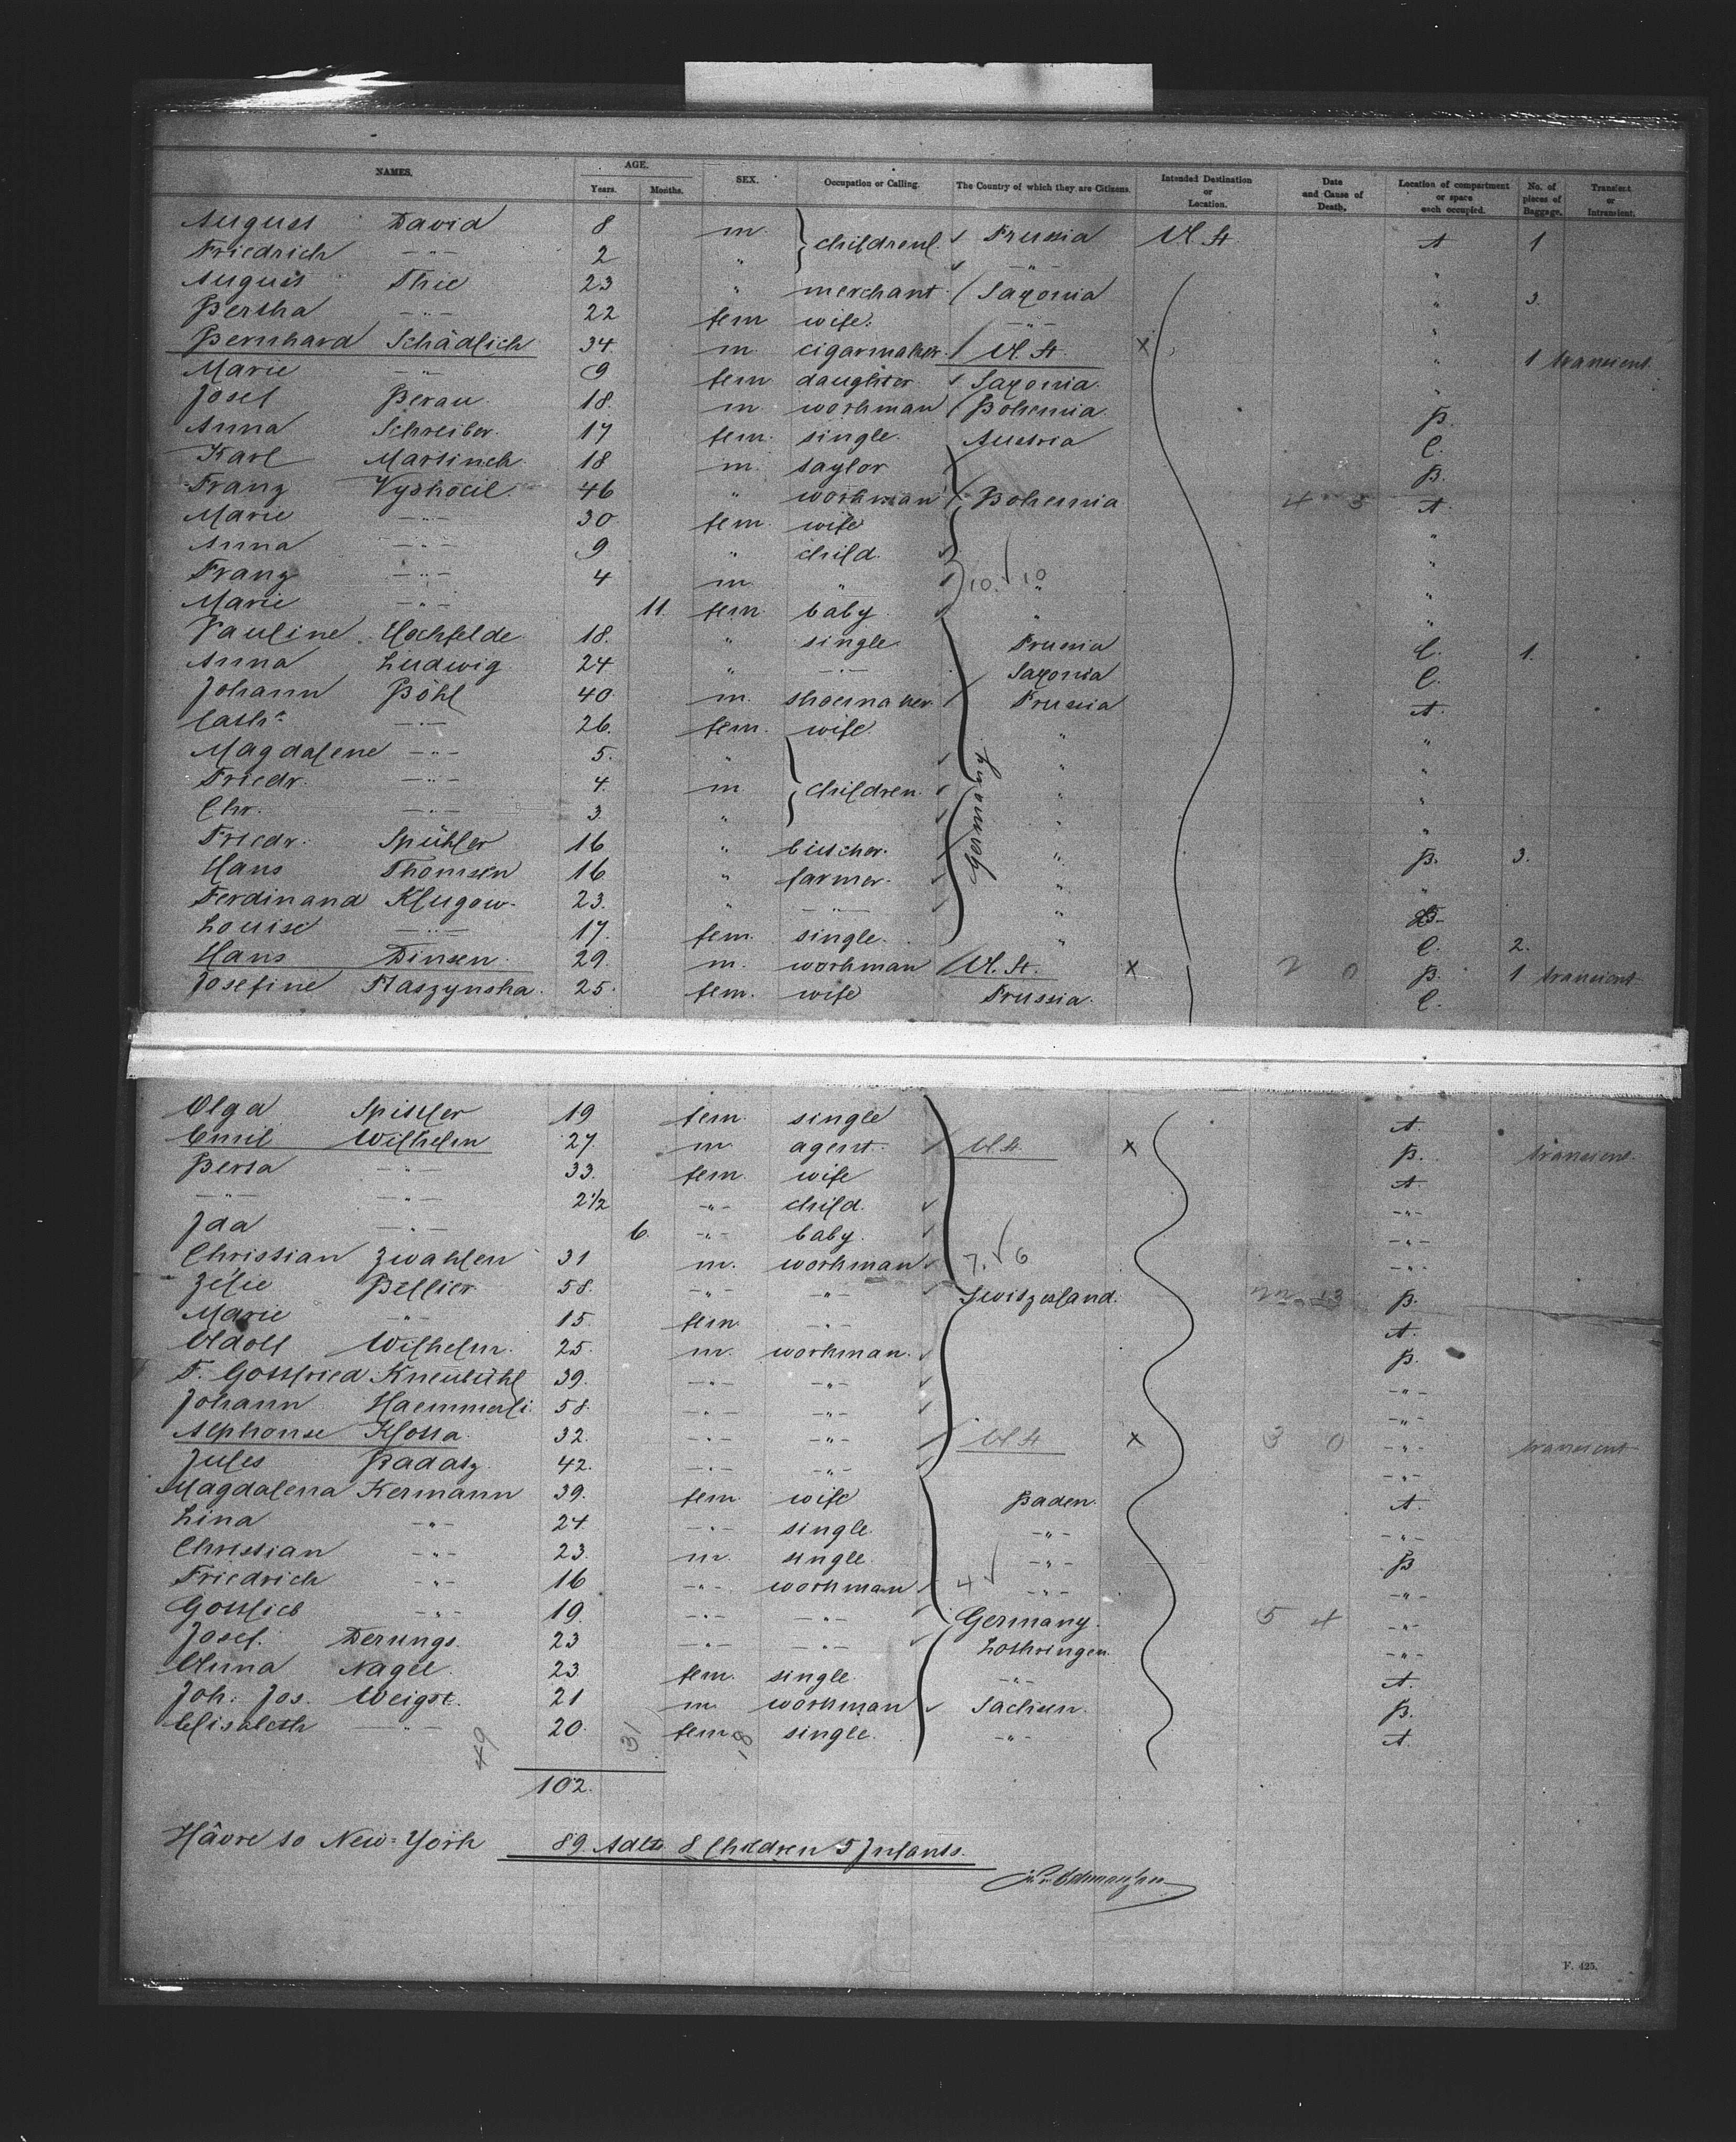 NAMES. AGE. SEX. Occupation or Calling. The Country of which they are Citizens. Intended Destination or Location. Date and Cause of Death. Location of compartment or space each occupied. No. of pieces of Baggage. Transient or Intransient.
Years. Months.
August David 8 m } children Prussia U. St. A 1
Friedrich —"— 2 " —"— "
August Thie 23 " merchant Saxonia " 3.
Bertha —"— 22 fem wife. —"— "
Bernhard Schädlich 34 m. cigarmaker U. St. X " 1 transient
Marie —"— 9 fem daughter Saxonia. "
Josef Berau. 18. m workman Bohemia B.
Anna Schreiber. 17 fem. single. Austria C.
Karl Martinek 18 m. saylor B.
Franz Vyskocil. 46 " workman Bohemia 4 3 A.
Marie —"— 30 fem. wife "
Anna —"— 9 " child. "
Franz —"— 4 m. " 10. 10 " "
Marie —"— 11 fem. baby " "
Pauline Hochfelde 18. " single Prussia C. 1.
Anna Ludwig 24 " —"— Saxonia C.
Johann Böhl 40. m. shoemaker Prussia A.
Cath. —"— 26. fem. wife " "
Magdalene —"— 5. " " "
Friedr. —"— 4. m } children. " "
Chr. —"— 3 " " "
Germany
Friedr. Spühler 16 " butcher. " B. 3.
Hans Thomsen 16 " farmer. " "
Ferdinand Klugow. 23. " —"— " B
Louise —"— 17. fem. single. " C. 2.
Hans Dinsen. 29. m. workman U. St. X 2 0 B. 1 transient
Josefine Staszynska. 25. fem. wife Prussia. C.
Olga Spittler 19 fem. single A.
Emil Wilhelm 27. m agent. U. St. X B. transient.
Berta —"— 33. fem. wife A.
—"— —"— 2 1/2 —"— child. —"—
Ida —"— 6. —"— baby. —"—
Christian Zwahlen 31 m. workman 7. 6 —"—
Zélie Bellier 58. —"— —"— Switzerland. B.
Marie —"— 15. fem. —"— A.
Adolf Wilhelm. 25. m. workman. B.
F. Gottfried Kneubühl 39. —"— —"— —"—
Johann Haemmerli 58. —"— —"— —"—
Alphonse Klotta. 32. —"— —"— U. St X 3 0 —"— transient
Jules Badatz 42. —"— —"— —"—
Magdalena Kermann 39. fem. wife Baden. A.
Lina —"— 24. —"— single. —"— —"—
Christian —"— 23. m. single. —"— B
Friedrich —"— 16 —"— workman 4 —"— —"—
Gottlieb —"— 19. —"— —"— Germany. 5 4 —"—
Josef. Derungs. 23 —"— —"— Lothringen. —"—
Anna Nagel. 23. fem. single. —"— A.
Joh. Jos. Weigst. 21 m. workman Sachsen. B.
Elisabeth —"— 20. fem. single. —"— A.
49 31 18
102.
Hâvre to New-York 89 Adlts 8 Children 5 Infants.
F. 425.